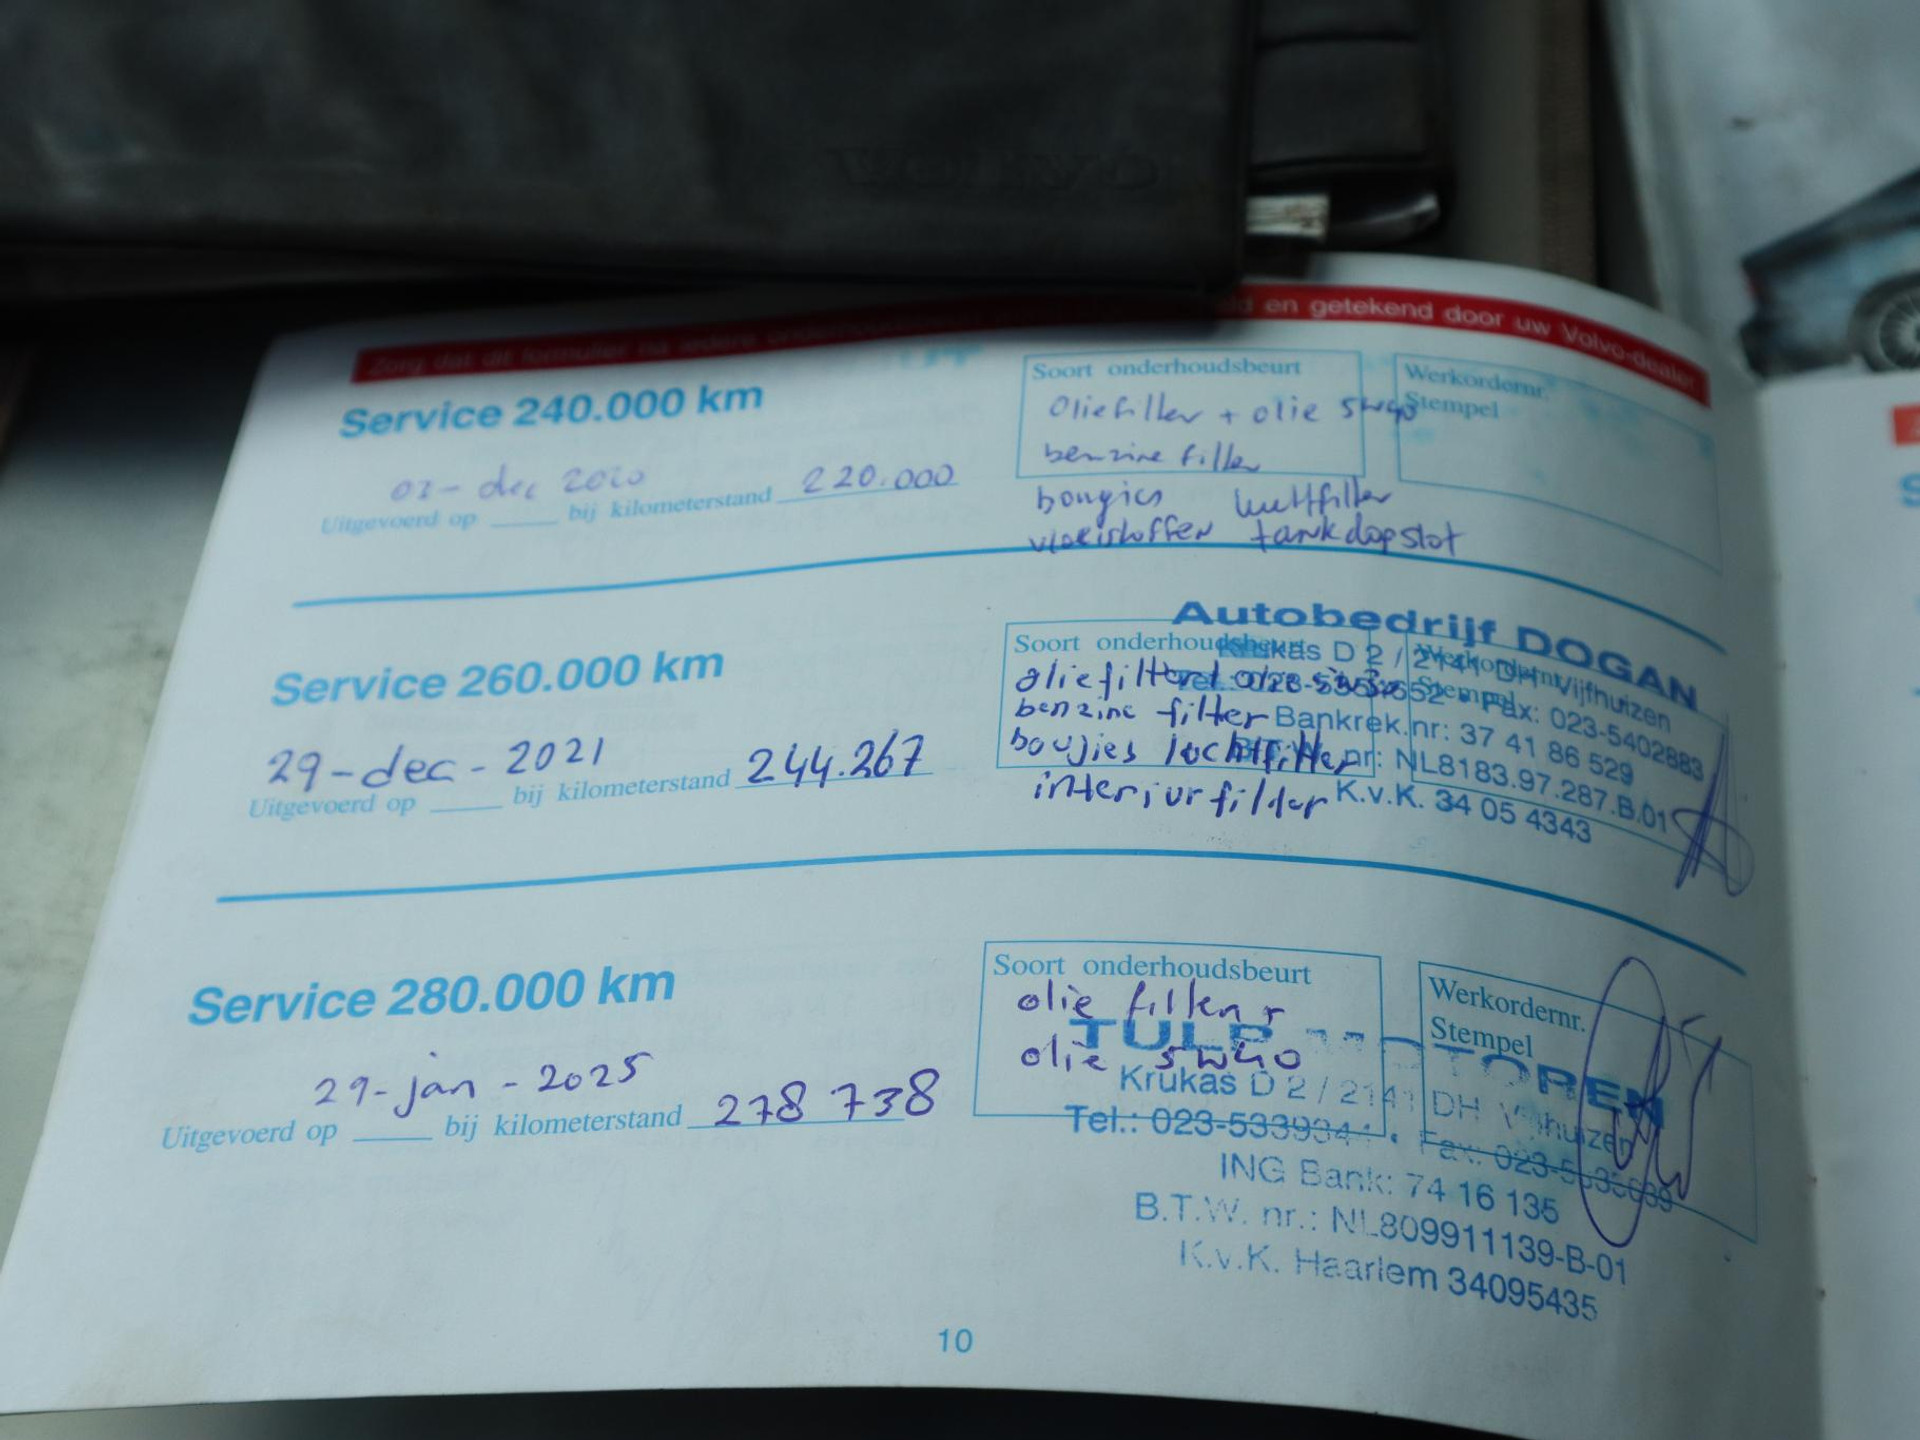 VOLVO
Zorg dat dit formulier na iedere en getekend door uw Volvo-dealer
Service 240.000 km
02-dec 2020
Uitgevoerd op bij kilometerstand 220.000
Soort onderhoudsbeurt
Oliefilter + olie 5w40
benzine filter
bougies luchtfilter
vloeistoffen tankdopslot
Werkordernr.
Stempel
Service 260.000 km
29-dec-2021
Uitgevoerd op bij kilometerstand 244.267
Soort onderhoudsbeurt
oliefilter
benzine filter
boujies luchtfilter
interjurfilder
Werkordernr.
Stempel
Autobedrijf DOGAN
Krukas D 2 / 2141 DH Vijfhuizen
Fax: 023-5402883
Bankrek.nr: 37 41 86 529
B.T.W. nr: NL8183.97.287.B.01
K.v.K. 34 05 4343
Service 280.000 km
29-jan-2025
Uitgevoerd op bij kilometerstand 278 738
Soort onderhoudsbeurt
olie filter +
olie 5w40
Werkordernr.
Stempel
TULP MOTOREN
Krukas D 2 / 2141 DH Vijfhuizen
Tel.: 023-5339344 • Fax: 023-5335639
ING Bank: 74 16 135
B.T.W. nr.: NL809911139-B-01
K.v.K. Haarlem 34095435
10